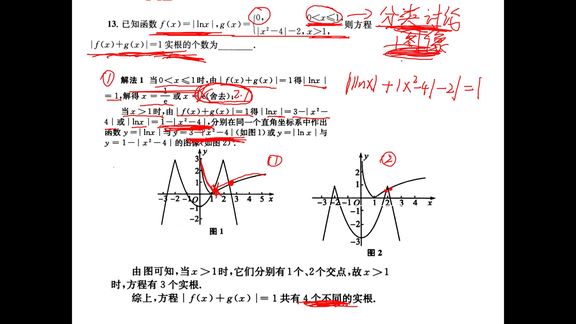 13. 已知函数 f(x)=|lnx|, g(x)={0, 0<x≤1, |x²-4|-2, x>1, 则方程 → 分类讨论
|f(x)+g(x)|=1 实根的个数为________.
图像
① 解法 1 当 0<x≤1 时,由|f(x)+g(x)|=1 得|lnx|
||lnx|+|x²-4|-2|=1
=1,解得 x=1/e 或 x=e(舍去);
当 x>1 时,由|f(x)+g(x)|=1 得|lnx|=3-|x²-
4|或|lnx|=1-|x²-4|,分别在同一个直角坐标系中作出
函数 y=|lnx|与 y=3-|x²-4|(如图1)或 y=|lnx|与
y=1-|x²-4|的图像(如图2).
①
②
y
3
2
1
-3 -2 -1 0 1 2 3 4 5 x
-1
-2
图 1
y
2
1
-3 -2 -1 0 1 2 3 4 x
-1
-2
-3
图 2
由图可知,当 x>1 时,它们分别有1个、2个交点,故 x>1
时,方程有 3 个实根.
综上,方程|f(x)+g(x)|=1 共有 4 个不同的实根.